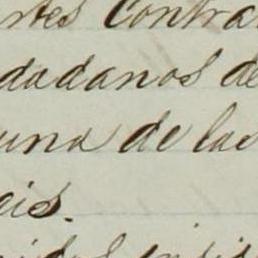 rtes Contra
dadanos de
una de las
eis.